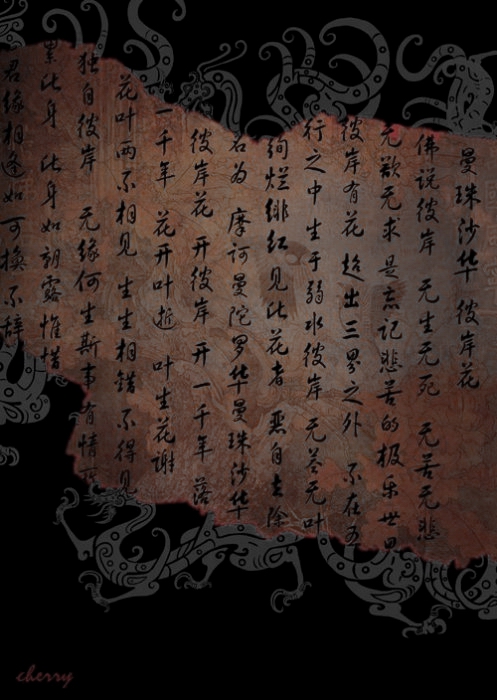 曼珠沙华 彼岸花
佛说彼岸 无生无死 无苦无悲
无欲无求 是忘记悲苦的极乐世界
彼岸有花 超出三界之外 不在五
行之中 生于弱水彼岸 无茎无叶
绚烂绯红 见此花者 恶自去除
名为 摩诃曼陀罗华曼珠沙华
彼岸花 开彼岸 开一千年 落
一千年 花开叶逝 叶生花谢
花叶两不相见 生生相错 不得见
独自彼岸 无缘何生斯事有情
累此身 此身如朝露惟惜
君缘相逢如可换不辞
cherry